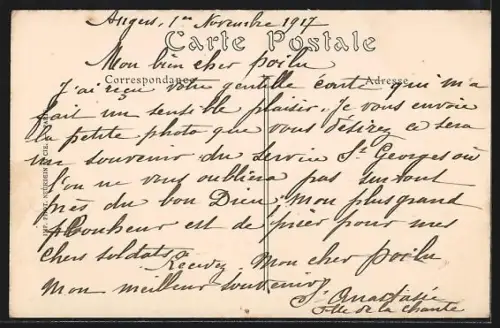 Angers, 1er Novembre 1917
Carte Postale
Mon bien cher poilu
Correspondance
Adresse
J'ai reçu votre gentille carte qui m'a
fait un sensible plaisir. je vous envoie
la petite photo que vous désirez ce sera
un souvenir du service St Georges où
l'on ne vous oubliera pas surtout
près du bon Dieu, mon plus grand
bonheur est de prier pour mes
chers soldats.
Recevez Mon cher poilu
Mon meilleur souvenir
Sr Anastasie
Flle de la charité